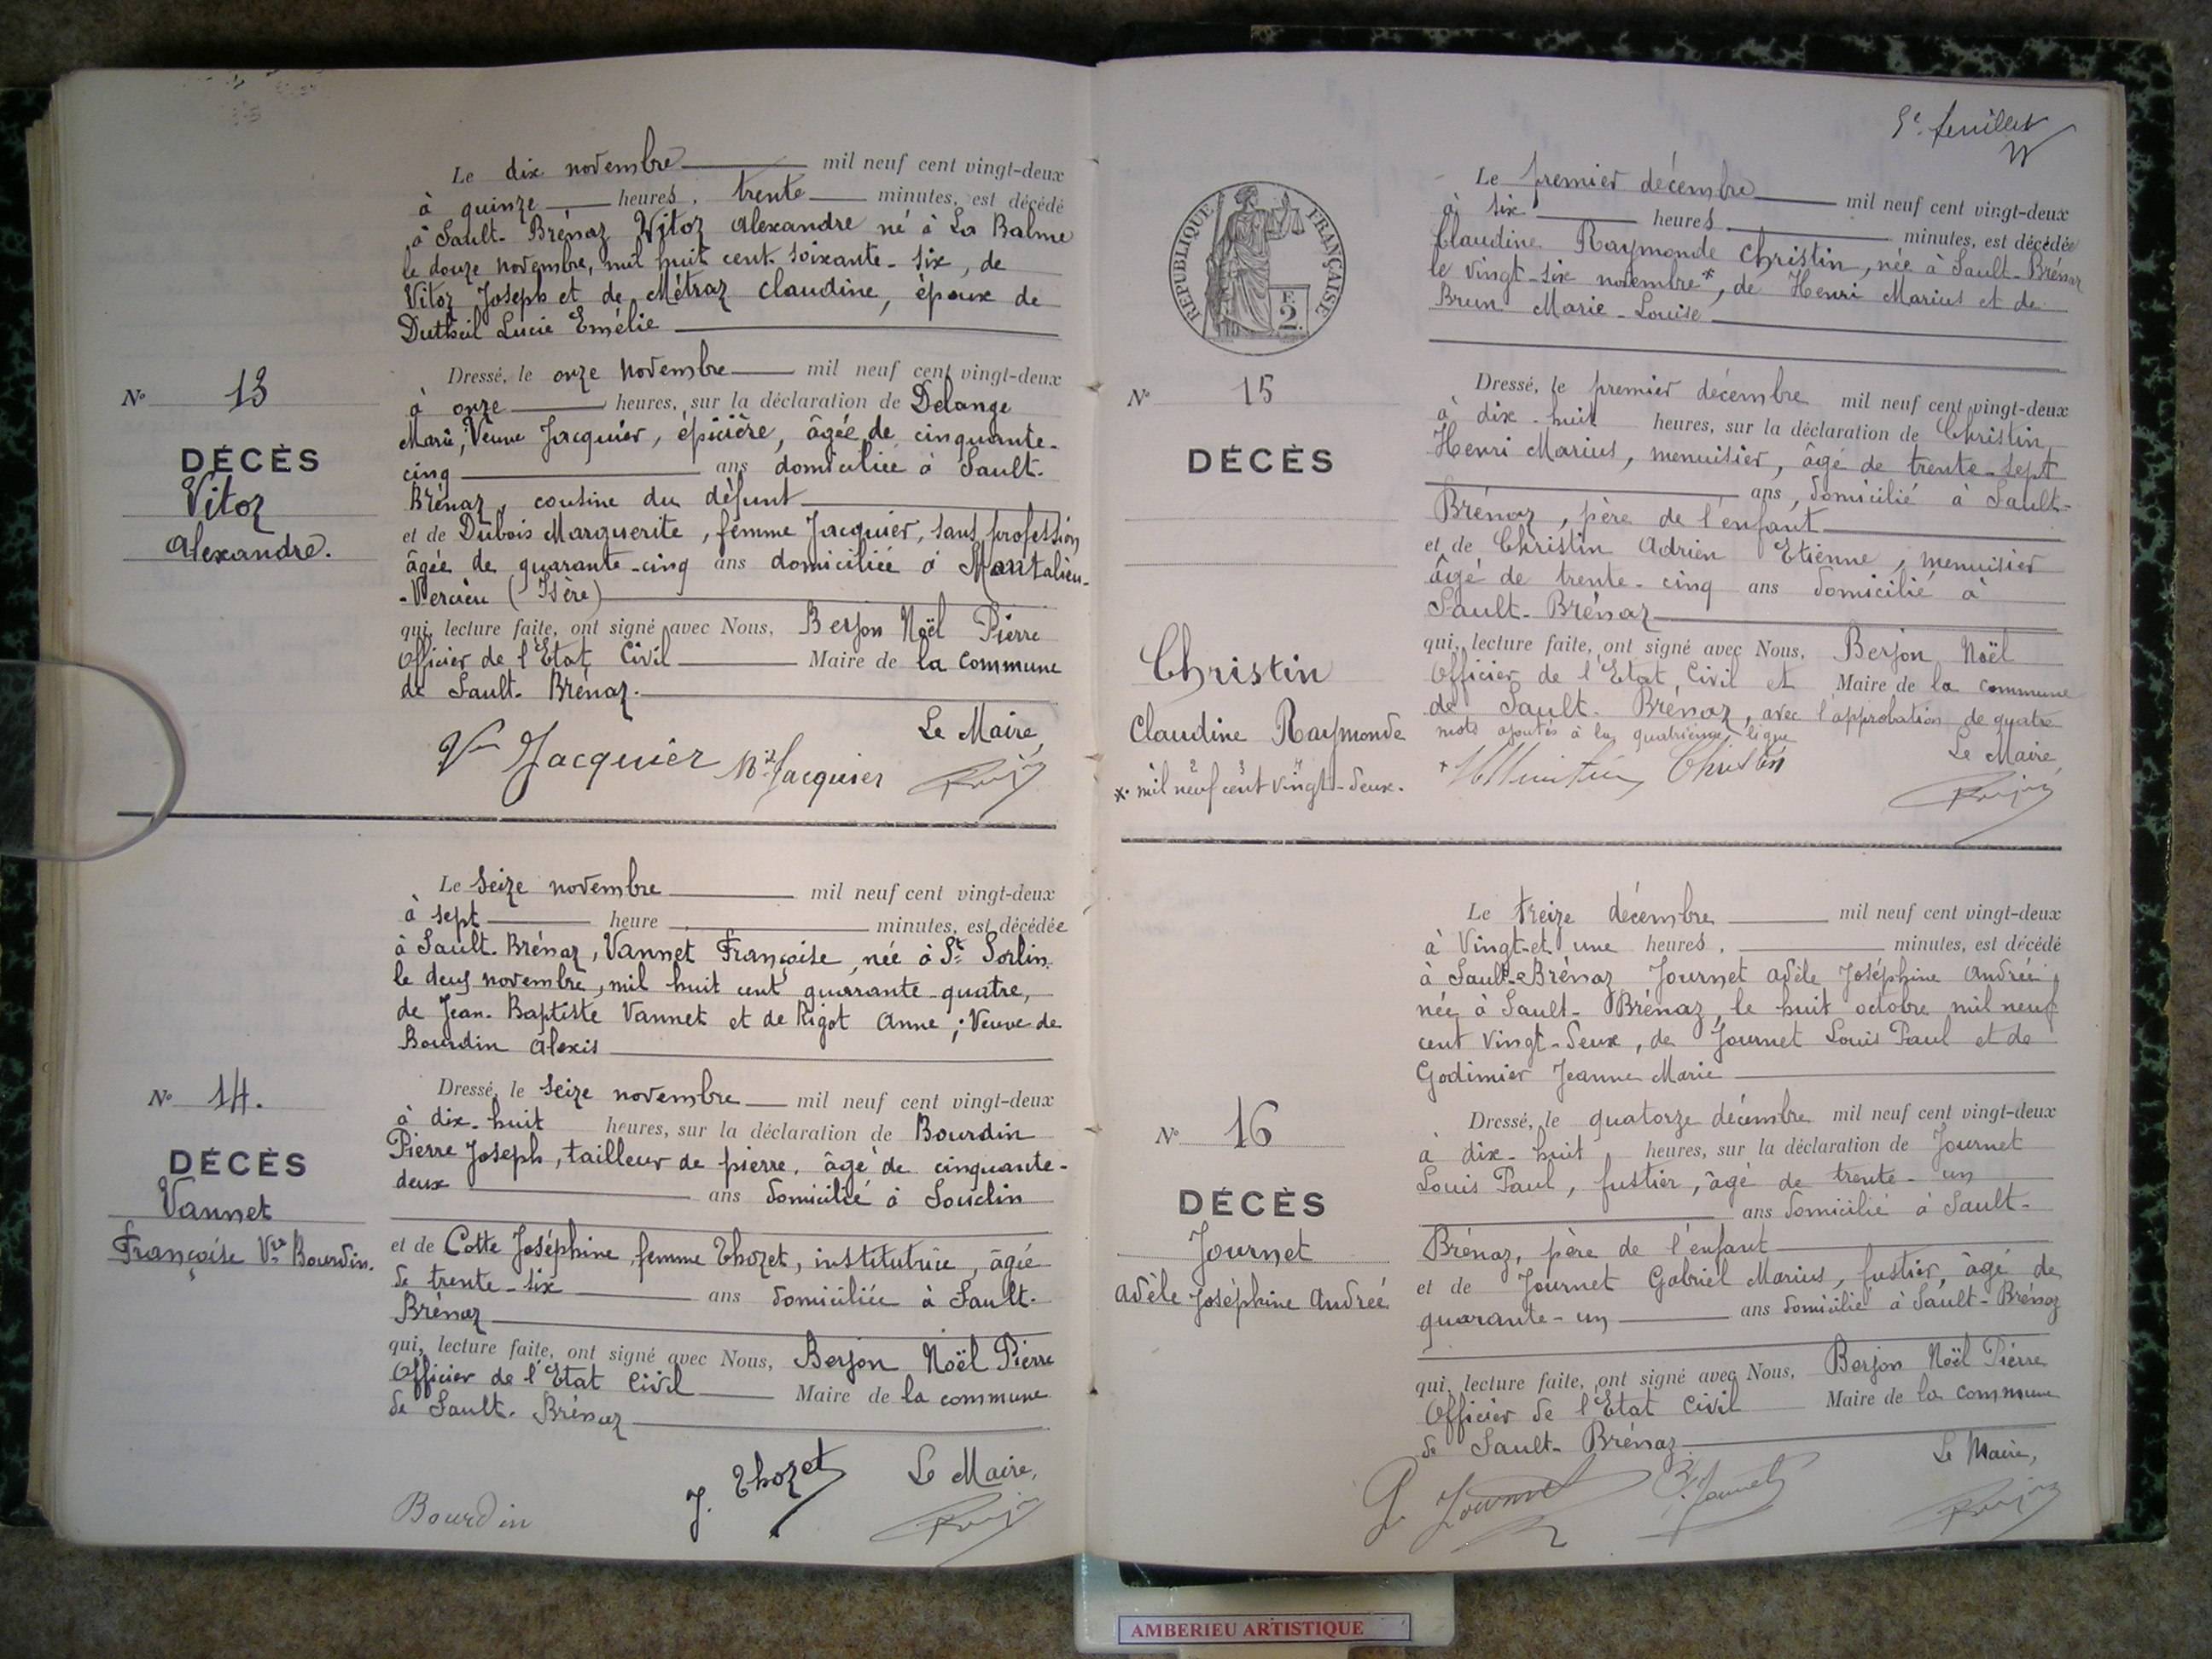 Le dix novembre mil neuf cent vingt-deux
à quinze heures, trente minutes, est décédé
à Sault-Brénaz Vitoz Alexandre né à La Balme
le douze novembre, mil huit cent soixante-six, de
Vitoz Joseph et de Métraz Claudine, époux de
Dutheil Lucie Emélie
Nº 13
DÉCÈS
Vitoz
Alexandre.
Dressé, le onze novembre mil neuf cent vingt-deux
à onze heures, sur la déclaration de Delange
Marie, Veuve Jacquier, épicière, âgée de cinquante-
cinq ans domiciliée à Sault-
Brénaz, cousine du défunt
et de Dubois Marguerite, femme Jacquier, sans profession
âgée de quarante-cinq ans domiciliée à Montalieu-
-Vercieu (Isère)
qui, lecture faite, ont signé avec Nous, Berjon Noël Pierre
Officier de l'Etat Civil Maire de la commune
de Sault-Brénaz.
Le Maire,
Vve Jacquier Mte Jacquier
Le seize novembre mil neuf cent vingt-deux
à sept heure , minutes, est décédée
à Sault-Brénaz, Vannet Françoise, née à St Sorlin
le deux novembre, mil huit cent quarante-quatre,
de Jean-Baptiste Vannet et de Rigot Anne ; Veuve de
Bourdin Alexis
Nº 14.
DÉCÈS
Vannet
Françoise Vve Bourdin.
Dressé, le seize novembre mil neuf cent vingt-deux
à dix-huit heures, sur la déclaration de Bourdin
Pierre Joseph, tailleur de pierre, âgé de cinquante-
deux ans domicilié à Souclin
et de Cotte Joséphine femme Thozet, institutrice, âgée
de trente-six ans domiciliée à Sault-
Brénaz
qui, lecture faite, ont signé avec Nous, Berjon Noël Pierre
Officier de l'Etat Civil Maire de la commune
de Sault-Brénaz
Le Maire,
Bourdin J. Thozet
5e feuillet
RÉPUBLIQUE FRANÇAISE
F.
2
Le premier décembre mil neuf cent vingt-deux
à six heures minutes, est décédée
Claudine Raymonde Christin, née à Sault-Brénaz
le vingt-six novembre*, de Henri Marius et de
Brun Marie-Louise
Nº 15
DÉCÈS
Christin
Claudine Raymonde
*. mil neuf cent vingt-deux.
2 3 4
Dressé, le premier décembre mil neuf cent vingt-deux
à dix-huit heures, sur la déclaration de Christin
Henri Marius, menuisier, âgé de trente-sept
ans, domicilié à Sault-
Brénaz, père de l'enfant
et de Christin Adrien Etienne, menuisier
âgé de trente-cinq ans domicilié à
Sault-Brénaz
qui, lecture faite, ont signé avec Nous, Berjon Noël
Officier de l'Etat Civil et Maire de la commune
de Sault-Brénaz, avec l'approbation de quatre
mots ajoutés à la quatrième ligne
Le Maire,
Christin
Le treize décembre mil neuf cent vingt-deux
à Vingt-et une heures, minutes, est décédé
à Sault-Brénaz Journet Adèle Joséphine Andrée
née à Sault-Brénaz, le huit octobre mil neuf
cent vingt-deux, de Journet Louis Paul et de
Godimier Jeanne Marie
Nº 16
DÉCÈS
Journet
Adèle Joséphine Andrée
Dressé, le quatorze décembre mil neuf cent vingt-deux
à dix-huit heures, sur la déclaration de Journet
Louis Paul, fustier, âgé de trente-un
ans domicilié à Sault-
Brénaz, père de l'enfant
et de Journet Gabriel Marius, fustier, âgé de
quarante-un ans domicilié à Sault-Brénaz
qui, lecture faite, ont signé avec Nous, Berjon Noël Pierre
Officier de l'Etat Civil Maire de la commune
de Sault-Brénaz
Le Maire,
Journet Journet
AMBERIEU ARTISTIQUE